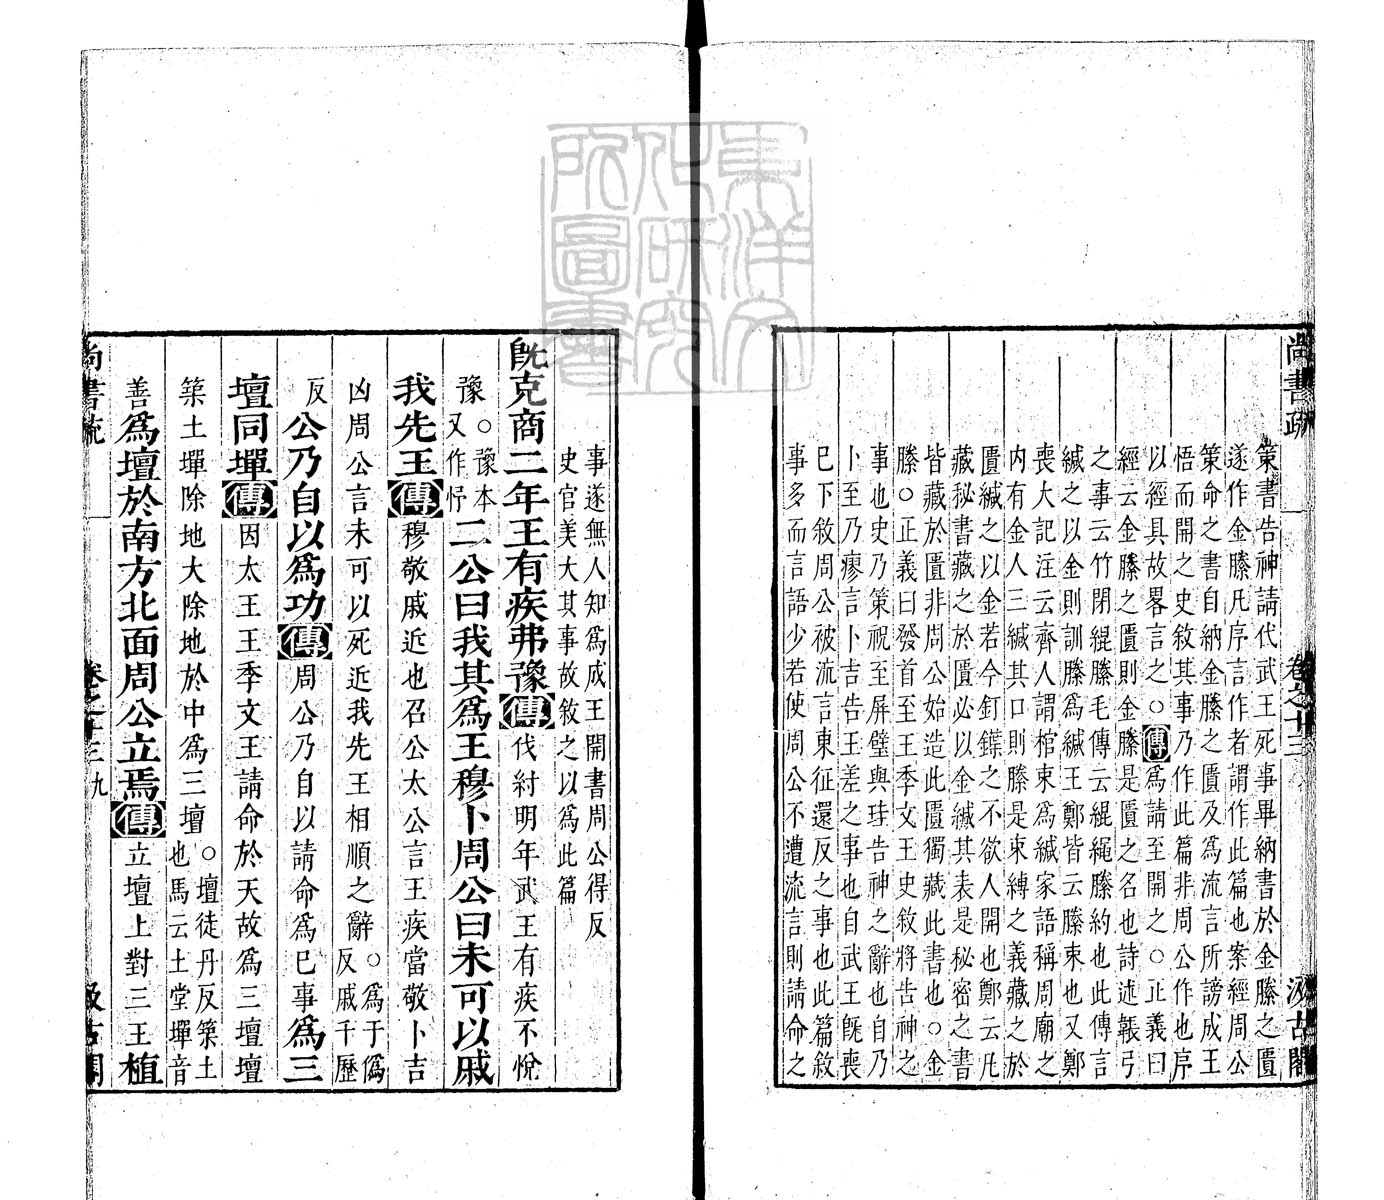 尚書疏 卷之十三 汲古閣
策書告神請代武王死事畢納書於金縢之匱
遂作金縢凡序言作者謂作此篇也案經周公
策命之書自納金縢之匱及爲流言所謗成王
悟而開之史敘其事乃作此篇非周公作也序
以經具故畧言之○傳爲請至開之○正義曰
經云金縢之匱則金縢是匱之名也詩述韔弓
之事云竹閉緄縢毛傳云緄繩縢約也此傳言
緘之以金則訓縢爲緘王鄭皆云縢束也又鄭
喪大記注云齊人謂棺束爲緘家語稱周廟之
内有金人三緘其口則縢是束縛之義藏之於
匱緘之以金若今釘鍱之不欲人開也鄭云凡
藏秘書藏之於匱必以金緘其表是秘密之書
皆藏於匱非周公始造此匱獨藏此書也○金
縢○正義曰發首至王季文王史敘將告神之
事也史乃策祝至屏璧與珪告神之辭也自乃
卜至乃瘳言卜吉告王差之事也自武王旣喪
巳下敘周公被流言東征還反之事也此篇敘
事多而言語少若使周公不遭流言則請命之
事遂無人知爲成王開書周公得反
史官美大其事故敘之以爲此篇
旣克商二年王有疾弗豫傳伐紂明年武王有疾不悅
豫○豫本又作忬二公曰我其爲王穆卜周公曰未可以戚
我先王傳穆敬戚近也召公太公言王疾當敬卜吉
凶周公言未可以死近我先王相順之辭○爲于僞反戚千歷
反公乃自以爲功傳周公乃自以請命爲已事爲三
壇同墠傳因太王王季文王請命於天故爲三壇壇
築土墠除地大除地於中爲三壇○壇徒丹反築土也馬云土堂墠音
善爲壇於南方北面周公立焉傳立壇上對三王植
尚書疏 卷之十三 九 汲古閣
東洋文化研究所圖書